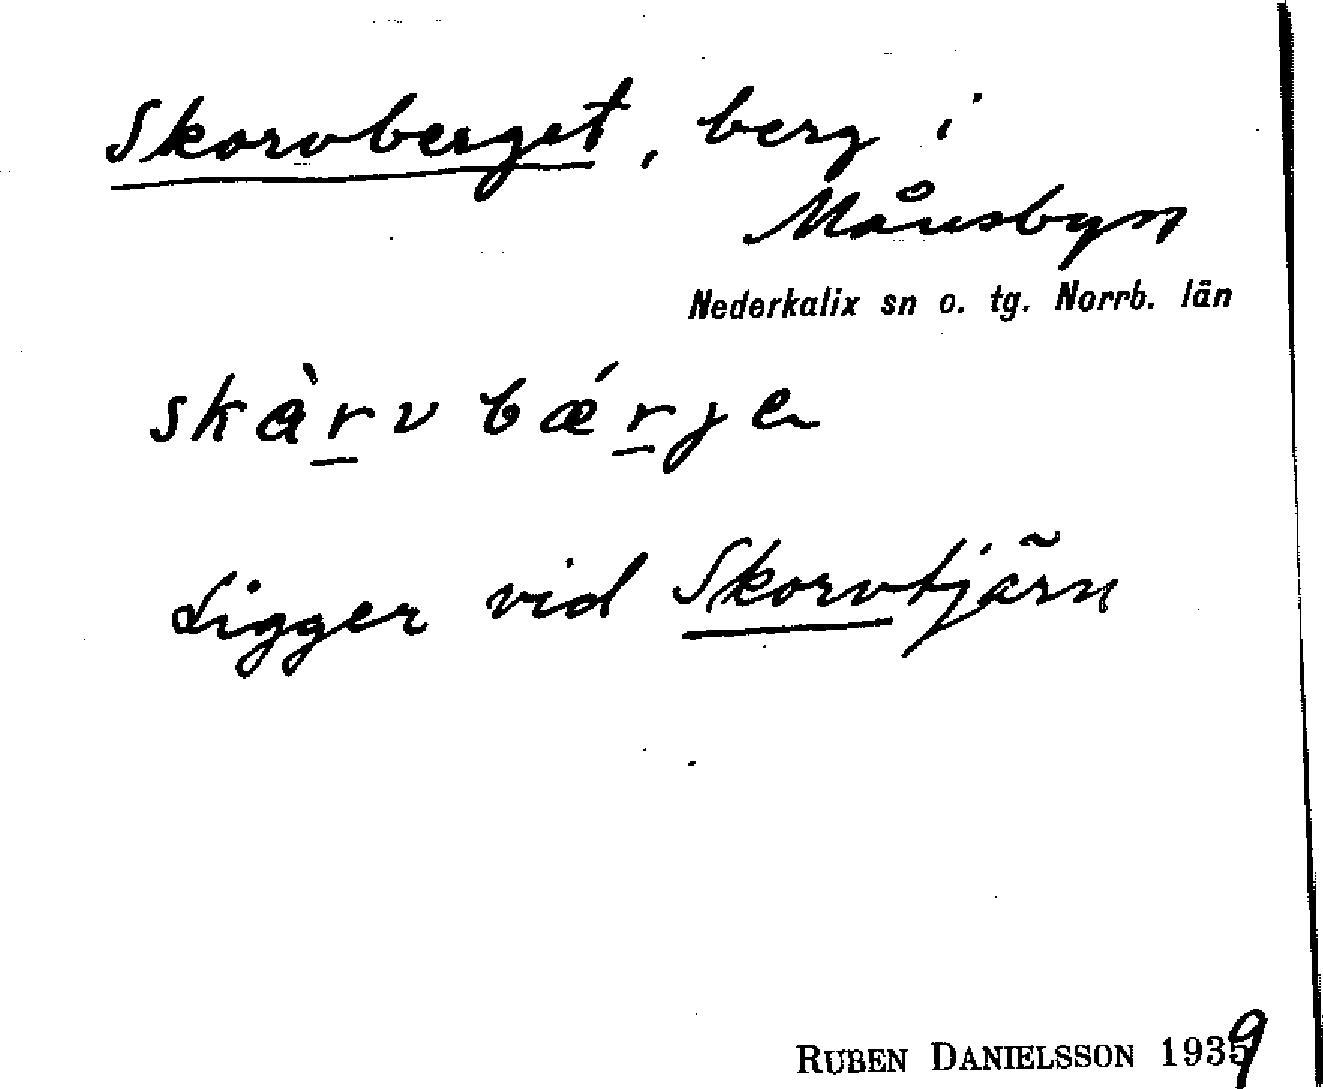 Skorvberget, berg i
Månsbyn
Nederkalix sn o. tg. Norrb. län
skàrvbǽrjen
Ligger vid Skorvtjärn
RUBEN DANIELSSON 1939